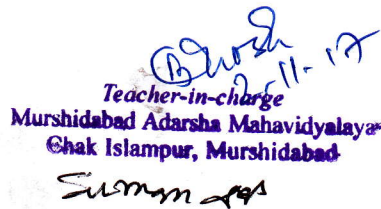 BGhosh
2-11-17
Teacher-in-charge
Murshidabad Adarsha Mahavidyalaya
Chak Islampur, Murshidabad
Suman